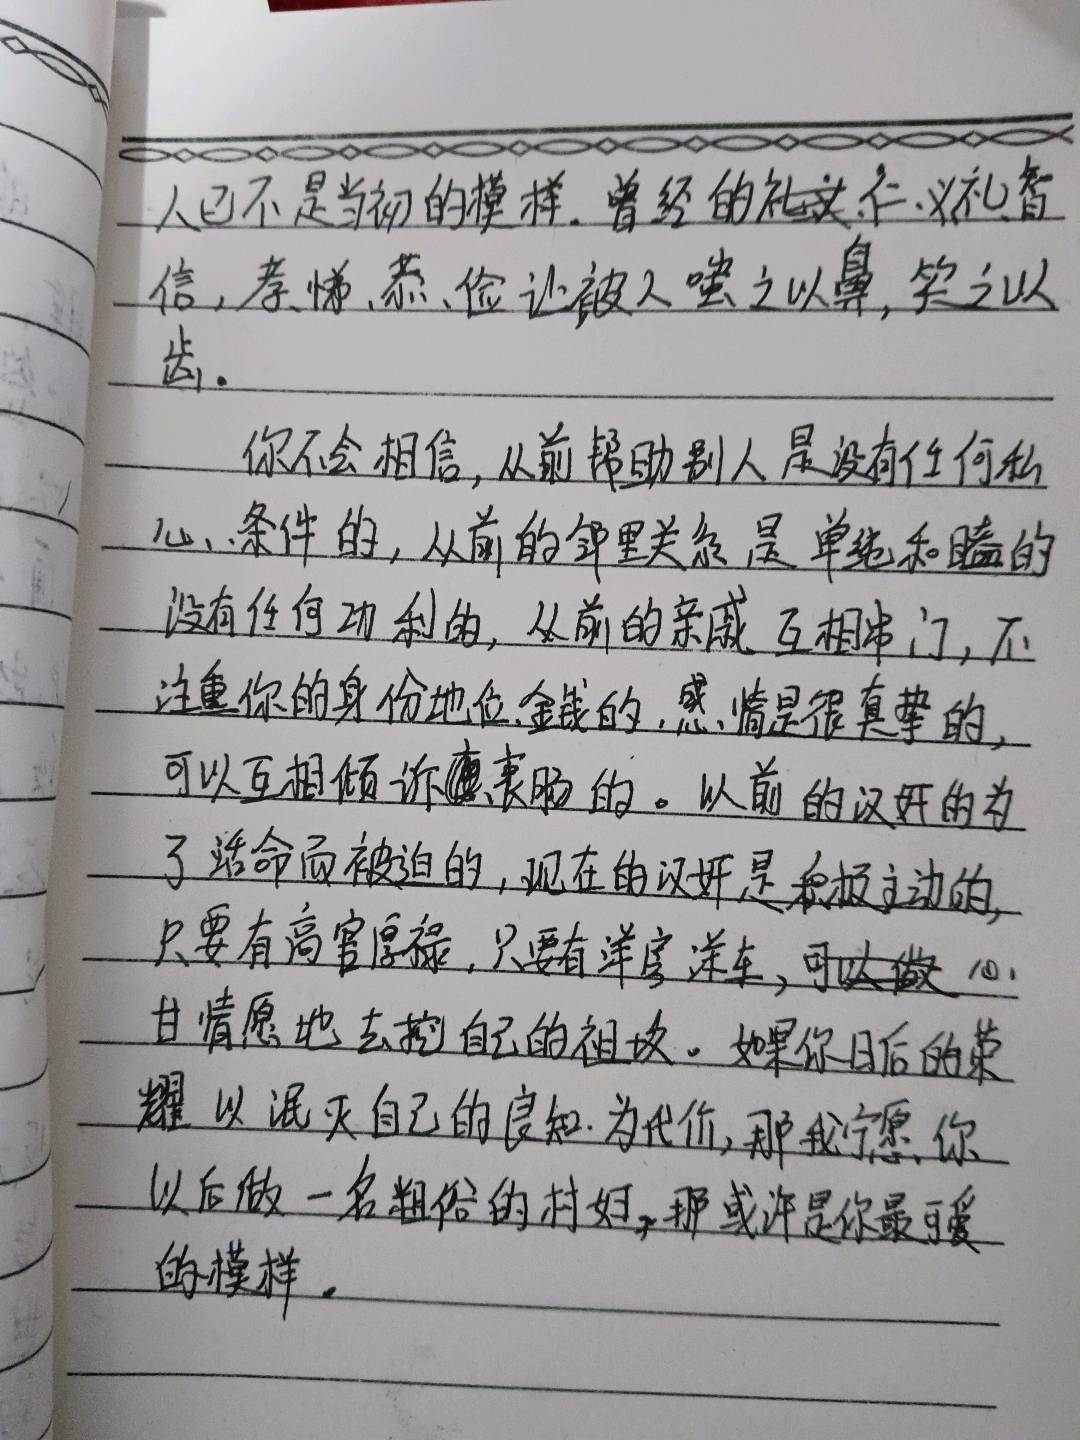 人已不是当初的模样.曾经的礼义.仁.义礼.智
信,孝悌、恭、俭让被人嗤之以鼻,笑之以
齿。
你不会相信,从前帮助别人是没有任何私
心、条件的,从前的邻里关系是单纯和瞌的
没有任何功利的,从前的亲戚互相串门,不
注重你的身份地位、金钱的.感情是很真挚的,
可以互相倾诉衷肠的。以前的汉奸的为
了活命而被迫的,现在的汉奸是积极主动的,
只要有高官厚禄,只要有洋房洋车,可以做心
甘情愿地去挖自己的祖坟。如果你日后的荣
耀以泯灭自己的良知.为代价,那我宁愿你
以后做一名粗俗的村妇,那或许是你最可爱
的模样.